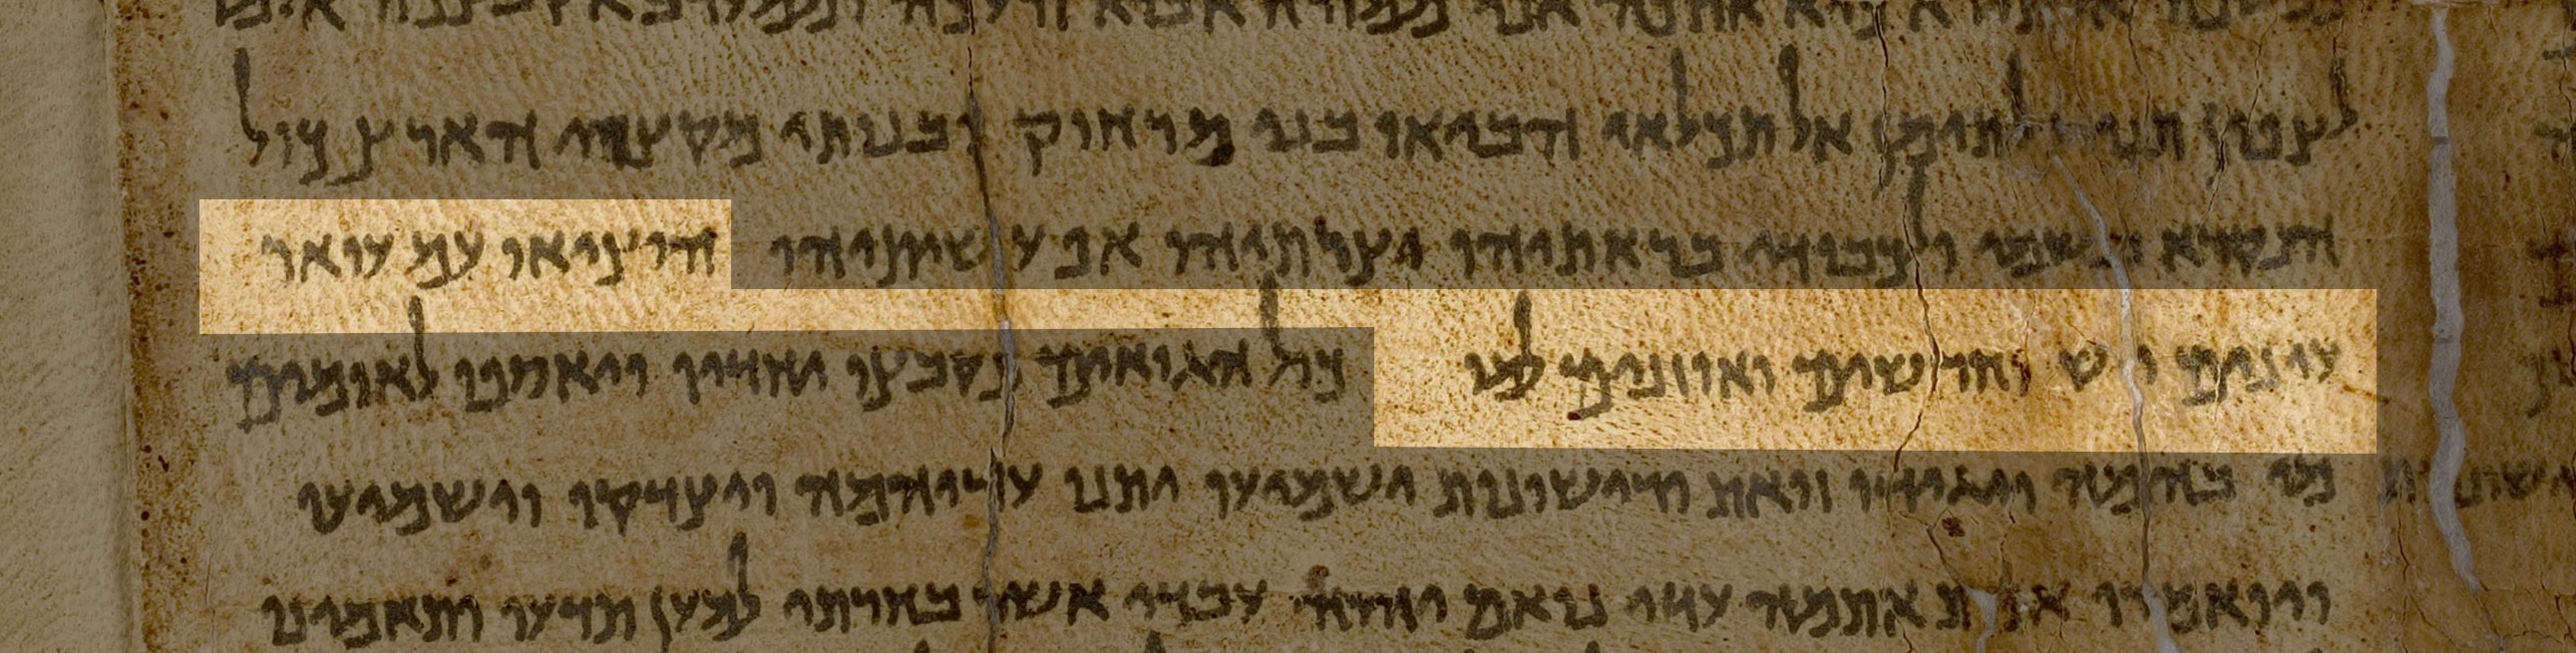 כיא אתכה אני ממזרח אביא זרעכה וממערבא אקבצכה אומר
לצפון תני ולתימן אל תכלאי הביאו בני מרחוק ובנותי מקצוי הארץ כול
הנקרא בשמי ולכבודי בראתיהו יצרתיהו אפ עשיתיהו הוציאו עם עואר
עינים יש וחרשים ואוזנים למו כול הגואים נקבצו יחדיו ויאספו לאומים
מי בהמה ויגידו זואת והרישונות ישמיעו יתנו עדיהמה ויצדקו וישמיעו
ויואמרו אמת אתמה עדי נואם יהוה ועבדי אשר בחרתי למען תדעו ותאמינו